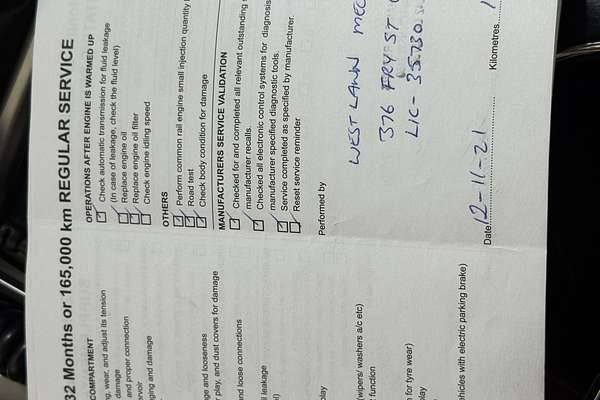 32 Months or 165,000 km REGULAR SERVICE
COMPARTMENT
g, wear, and adjust its tension
damage
and proper connection
rvoir
ging and damage
ge and looseness
play, and dust covers for damage
and loose connections
l leakage
l)
play
(wipers/ washers a/c etc)
function
for tyre wear)
play
ehicles with electric parking brake)
OPERATIONS AFTER ENGINE IS WARMED UP
Check automatic transmission for fluid leakage
(In case of leakage, check the fluid level)
Replace engine oil
Replace engine oil filter
Check engine idling speed
OTHERS
Perform common rail engine small injection quantity
Road test
Check body condition for damage
MANUFACTURERS SERVICE VALIDATION
Checked for and completed all relevant outstanding
manufacturer recalls.
Checked all electronic control systems for diagnosis
manufacturer specified diagnostic tools.
Service completed as specified by manufacturer
Reset service reminder
Performed by
WEST LAWN MEC
376 FRY ST
LIC- 35730
Date 12-11-21 Kilometres